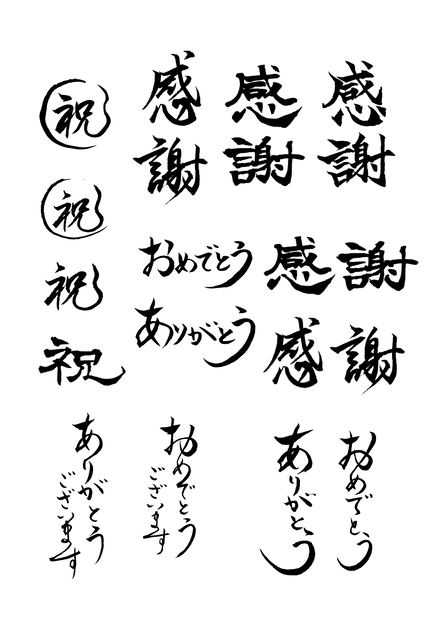 祝
祝
祝
祝
感謝
感謝
感謝
おめでとう
ありがとう
感謝
感謝
ありがとう
ございます
おめでとう
ございます
ありがとう
おめでとう